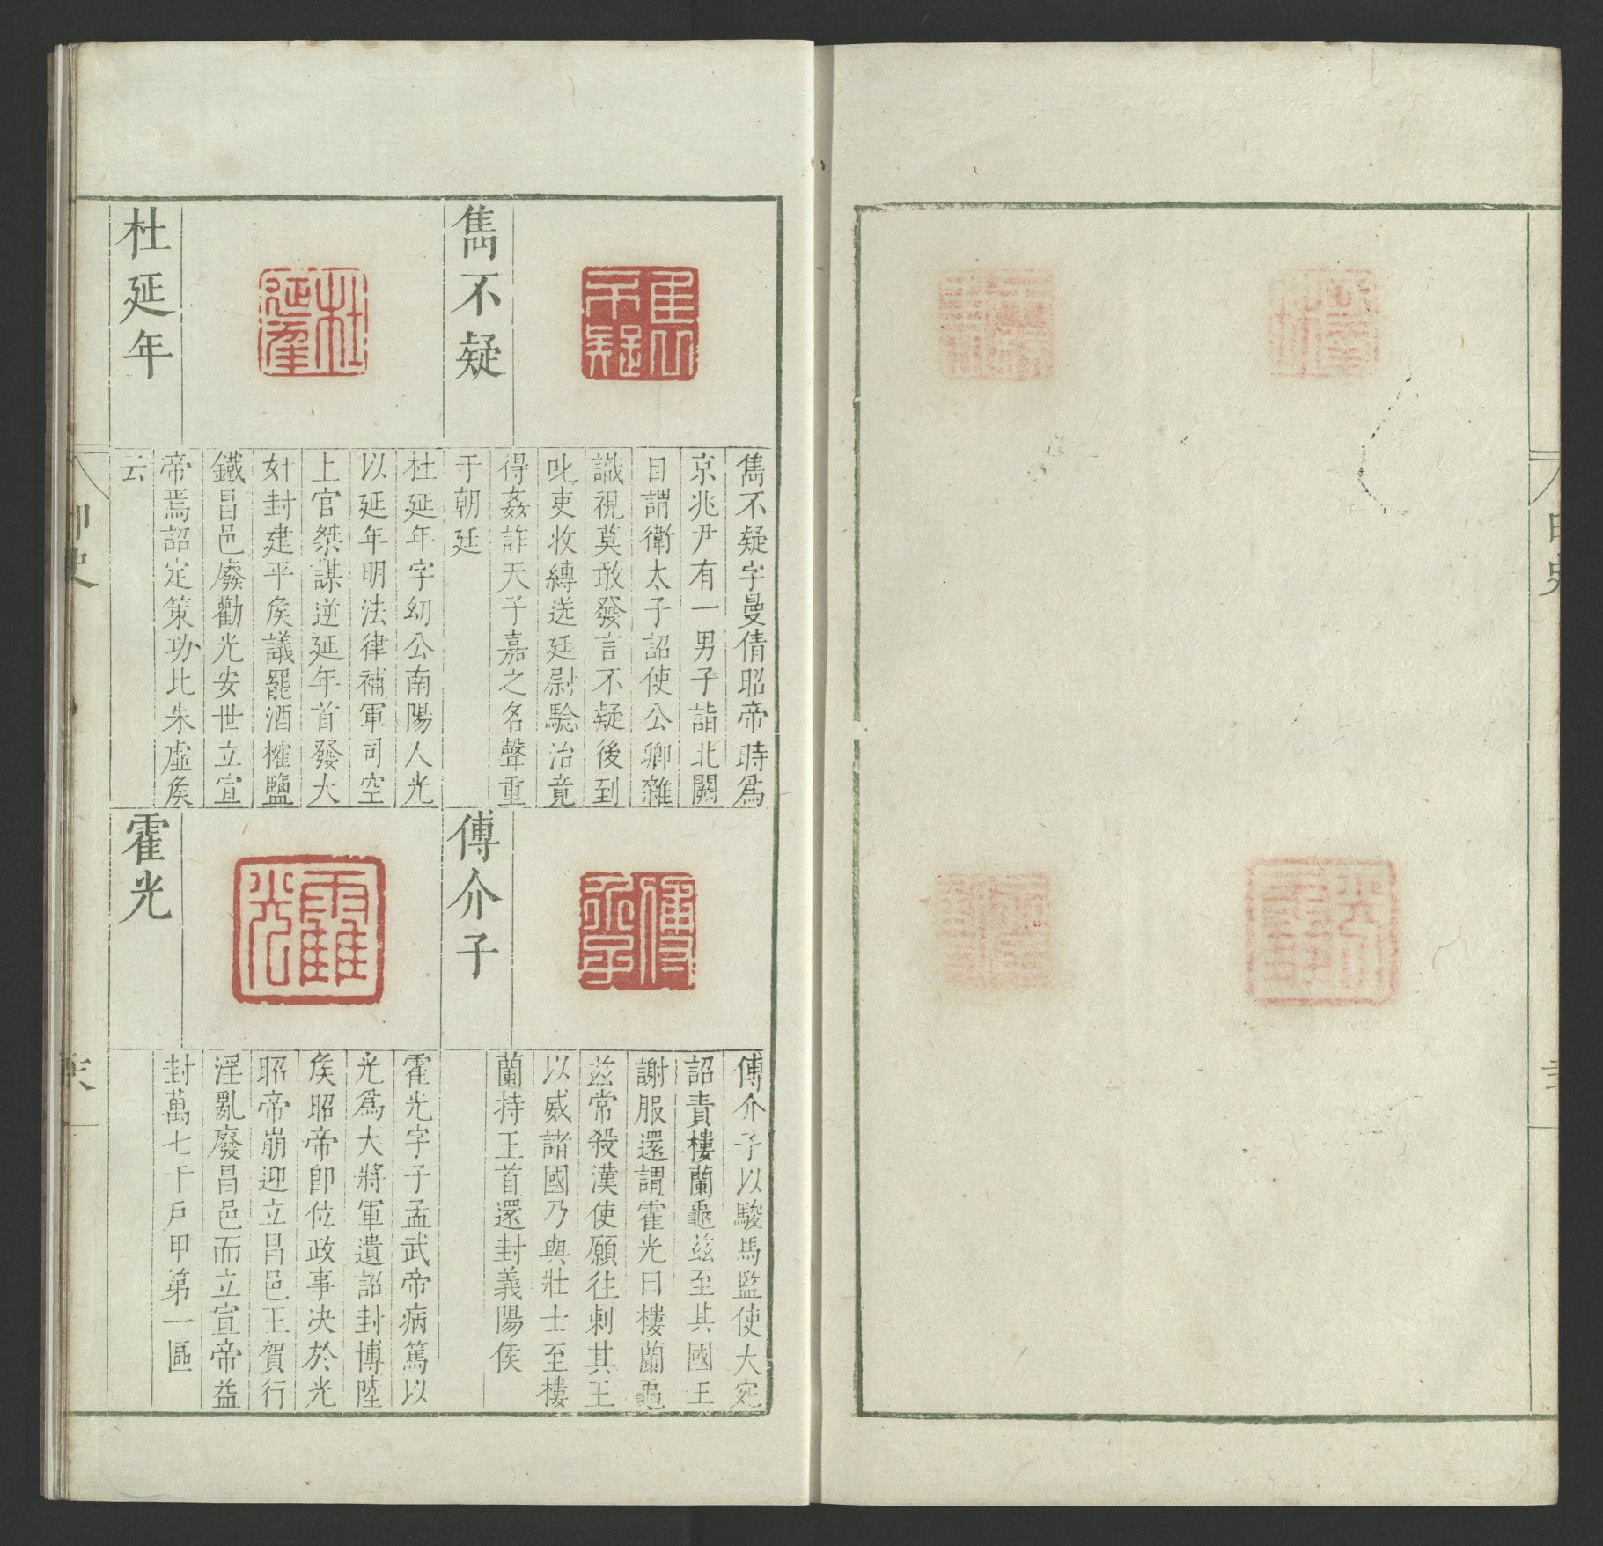 雋不疑
雋不疑字曼倩昭帝時爲
京兆尹有一男子詣北闕
自謂衛太子詔使公卿雜
識視莫敢發言不疑後到
叱吏收縛送廷尉驗治竟
得姦詐天子嘉之名聲重
于朝廷
杜延年
杜延年字幼公南陽人光
以延年明法律補軍司空
上官桀謀逆延年首發大
奸封建平矦議罷酒榷鹽
鐵昌邑廢勸光安世立宣
帝焉詔定策功比朱虛矦
云
傅介子
傅介子以駿馬監使大宛
詔責樓蘭龜茲至其國王
謝服還謂霍光曰樓蘭龜
茲常殺漢使願往刺其王
以威諸國乃與壯士至樓
蘭持王首還封義陽侯
霍光
霍光字子孟武帝病篤以
光爲大將軍遺詔封博陸
矦昭帝卽位政事决於光
昭帝崩迎立昌邑王賀行
淫亂廢昌邑而立宣帝益
封萬七千戶甲第一區
印史